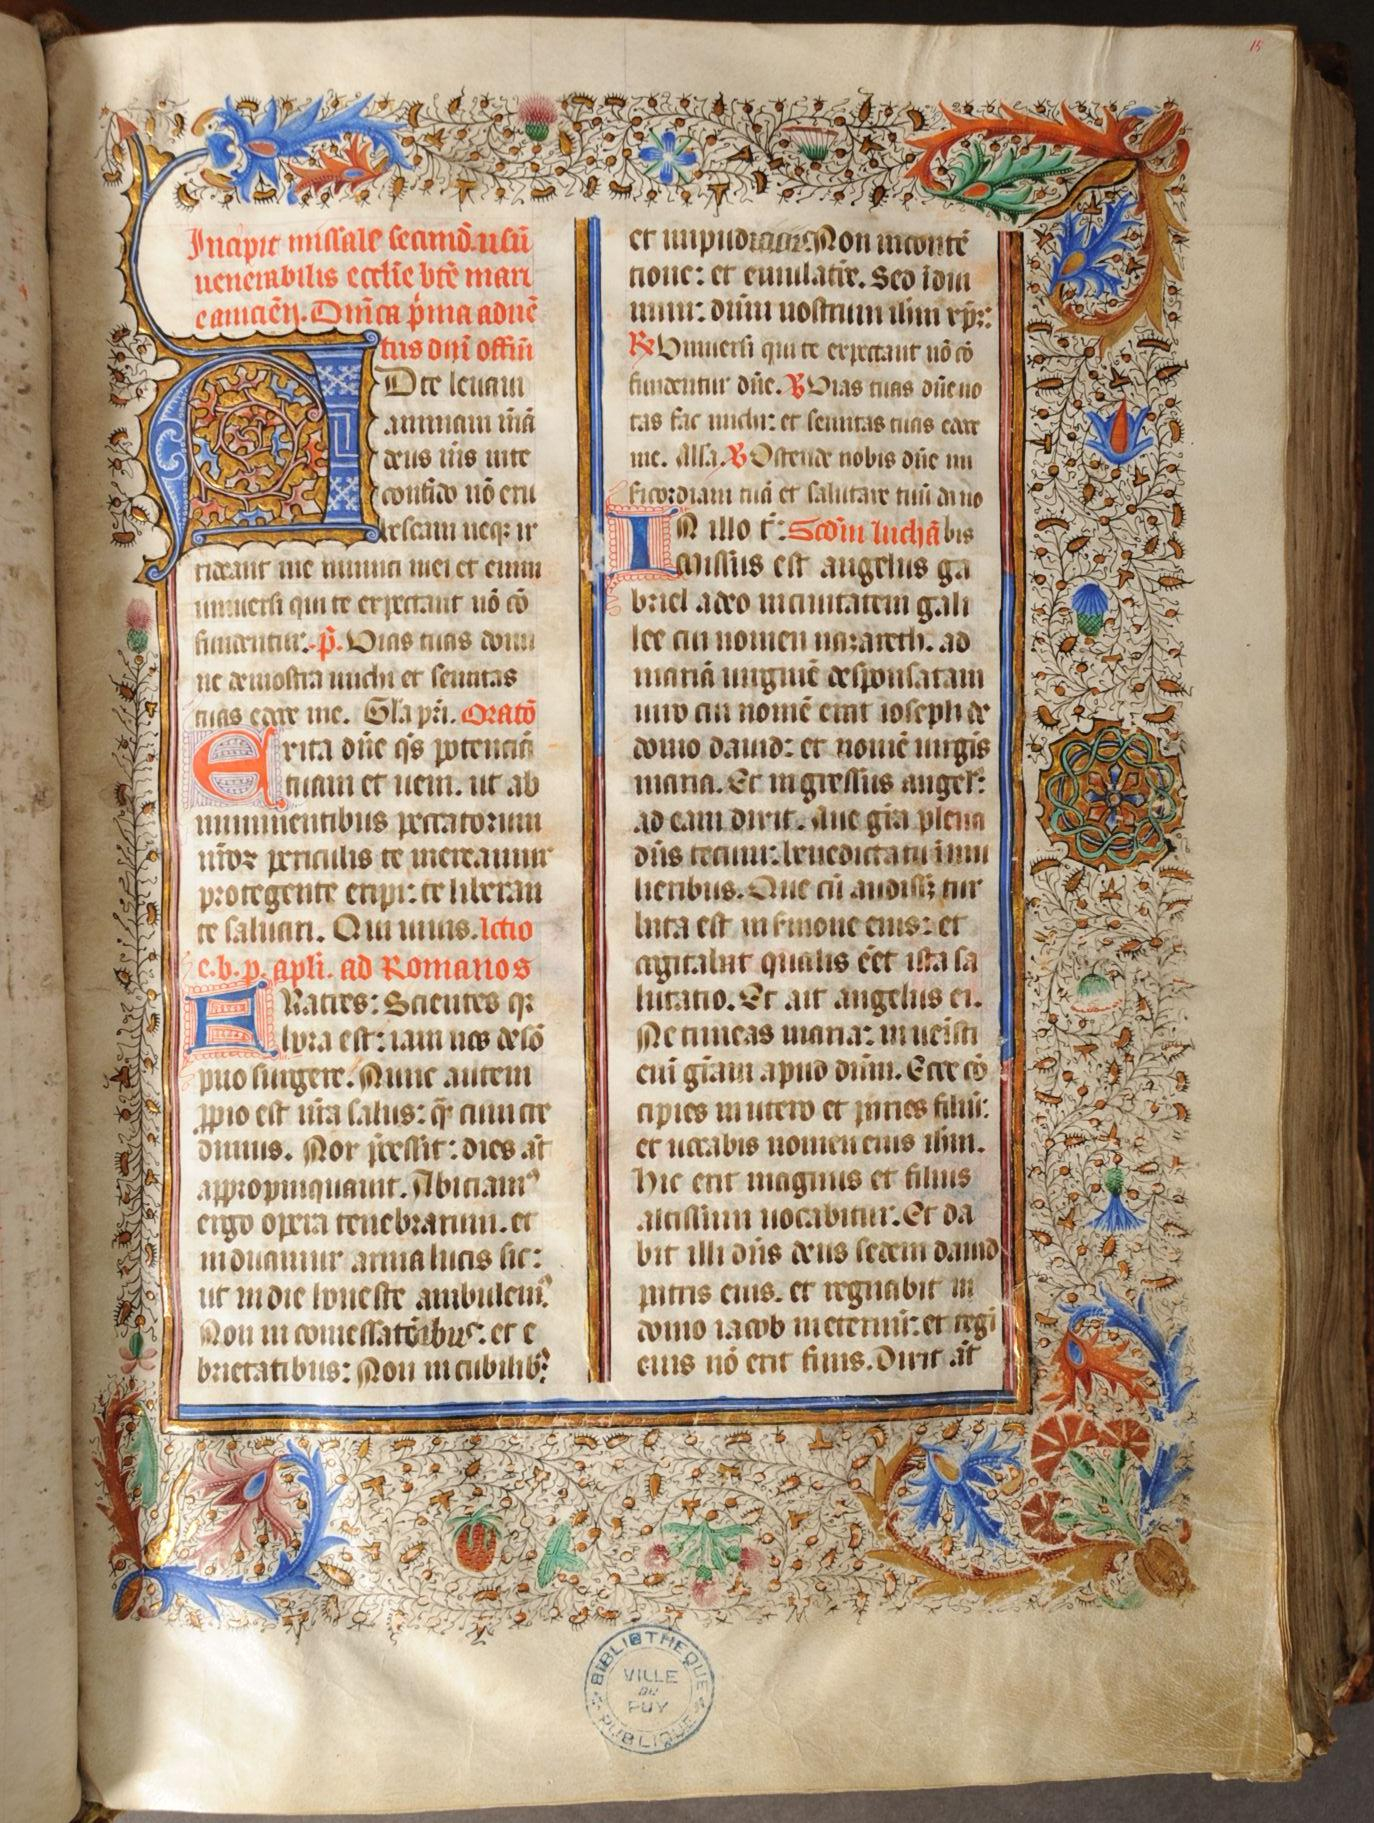 Incipit missale secundũ usũ
venerabilis ecclie bte mari
e aniciẽñ. Dñica p̃ma aduẽ
tus dñi offiũ
AD te leuaui
animam meã
deus m̃s in te
confido nõ eru
bescam neqꝫ ir
rideant me inimici mei et enim
uniuersi qui te expectant nõ cõ
fundentur. p̃. Vias tuas domi
ne demostra michi et semitas
tuas edoce me. Gl̃a pr̃i. Oratõ
Excita dñe q̃s potenciã
tuam et ueni. ut ab
imminentibus peccatorum
nr̃oꝝ periculis te mereamur
protegente eripi: te liberan
te saluari. Qui uiuis. lctio
e. b. p. apl̃i. ad Romanos
FRatres: Scientes qꝛ
hora est: iam nos de sõ
pno surgere. Nunc autem
ꝓpio est nr̃a salus: q̃ cum cre
dimus. Nox p̃cessit: dies aũt
appropinquauit. Abiciamꝰ
ergo opera tenebrarum. et
induamur arma lucis sic:
ut in die honeste ambulemꝰ.
Non in comessatõibus: et e
brietatibus: Non in cubilibꝫ:
et impudiciciis: Non in contẽ
tione: et emulatiõe. Sed ĩdui
mini: dñm nostrum ih̃m xp̃m:
℟ Vniuersi qui te expectant nõ cõ
fundentur dñe. ℣ Vias tuas dñe no
tas fac michi: et semitas tuas edoce
me. All̃a. ℣ Ostende nobis dñe mi
sicordiam tuã et salutare tuũ da no
IN illo t̃: Scd̃m luchã bis
Missus est angelus ga
briel a deo in ciuitatem gali
lee cui nomen nazareth. ad
mariã uirginẽ desponsatam
uiro cui nomẽ erat ioseph de
domo dauid: et nomẽ uirgĩs
maria. Et ingressus angel̃:
ad eam dixit. Aue gr̃a plena
dñs tecum: benedicta tu ĩ mu
lieribus. Que cũ audissꝫ tur
bata est in sermone eius: et
cogitabat qualis eẽt ista sa
lutatio. Et ait angelus ei.
Ne timeas maria: inuẽisti
eni gr̃am apud dñm. Ecce cõ
cipies in utero et paries filiũ:
et uocabis nomen eius ih̃m.
Hic erit magnus et filius
altissimi uocabitur. Et da
bit illi dñs deus sedem dauid
patris eius. et regnabit in
domo iacob in eternũ: et regĩ
eius nõ erit finis. Dixit aũt
15
BIBLIOTHEQUE
VILLE
DU
PUY
PUBLIQUE